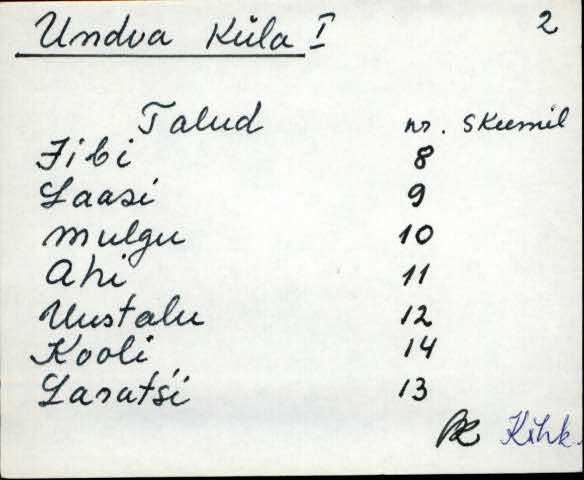 Undva Küla I 2
Talud nr. skeemil
Jibi 8
Laasi 9
Mulgu 10
Ahi 11
Uustalu 12
Kooli 14
Laratśi 13
Kihk.